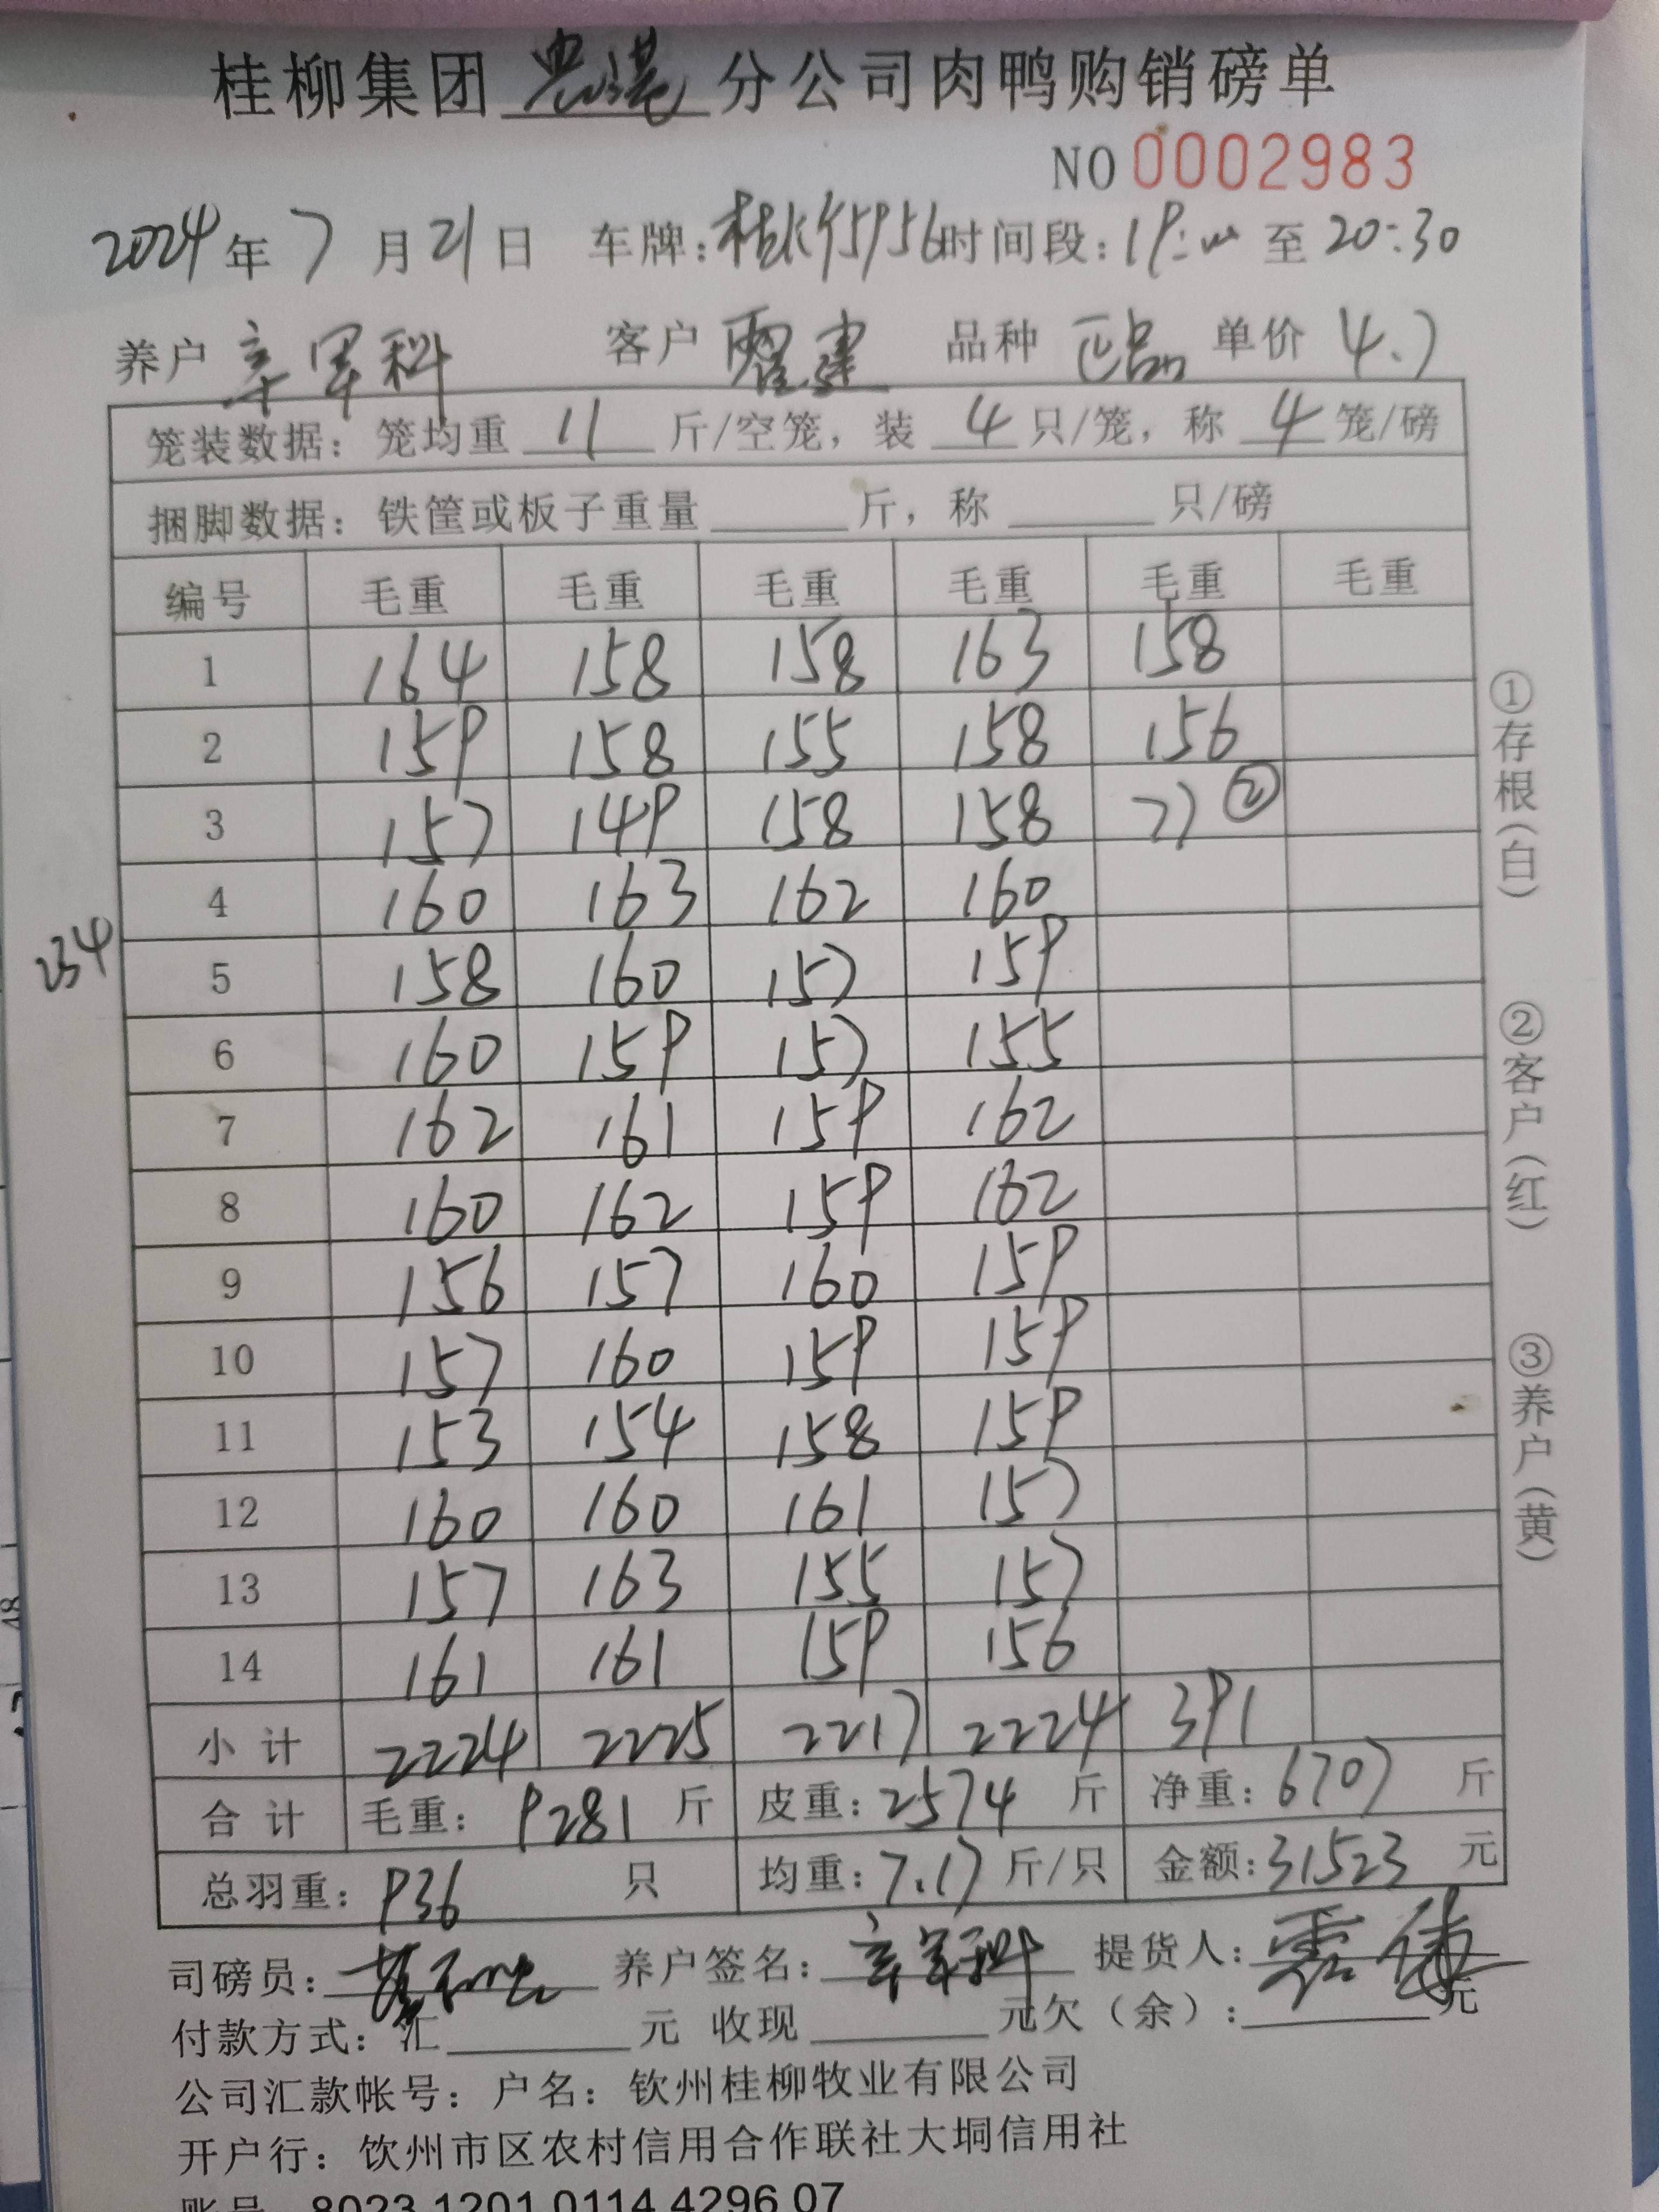 桂柳集团贵港分公司肉鸭购销磅单
NO 0002983
2024年7月21日 车牌: 时间段:19: 至20:30
养户 客户 品种 正品 单价 4.7
笼装数据: 笼均重 11 斤/空笼, 装 4 只/笼, 称 4 笼/磅
捆脚数据: 铁筐或板子重量 斤, 称 只/磅
编号 毛重 毛重 毛重 毛重 毛重 毛重
1 164 158 158 163 158
2 159 158 155 158 156
3 157 149 158 158 77 ②
4 160 163 162 160
234
5 158 160 157 159
6 160 159 157 155
7 162 161 159 162
8 160 162 159 162
9 156 157 160 159
10 157 160 159 159
11 153 154 158 159
12 160 160 161 157
13 157 163 155 157
14 161 161 159 156
小计 2224 2225 2217 2224 391
合计 毛重: 9281 斤 皮重: 2574 斤 净重: 6707 斤
总羽重: 936 只 均重: 7.17 斤/只 金额: 31523 元
①存根(白)
②客户(红)
③养户(黄)
司磅员: 养户签名: 提货人:
付款方式: 汇 元 收现 元欠(余): 元
公司汇款帐号: 户名: 钦州桂柳牧业有限公司
开户行: 钦州市区农村信用合作联社大垌信用社
账号 8023 1201 0114 4296 07
48